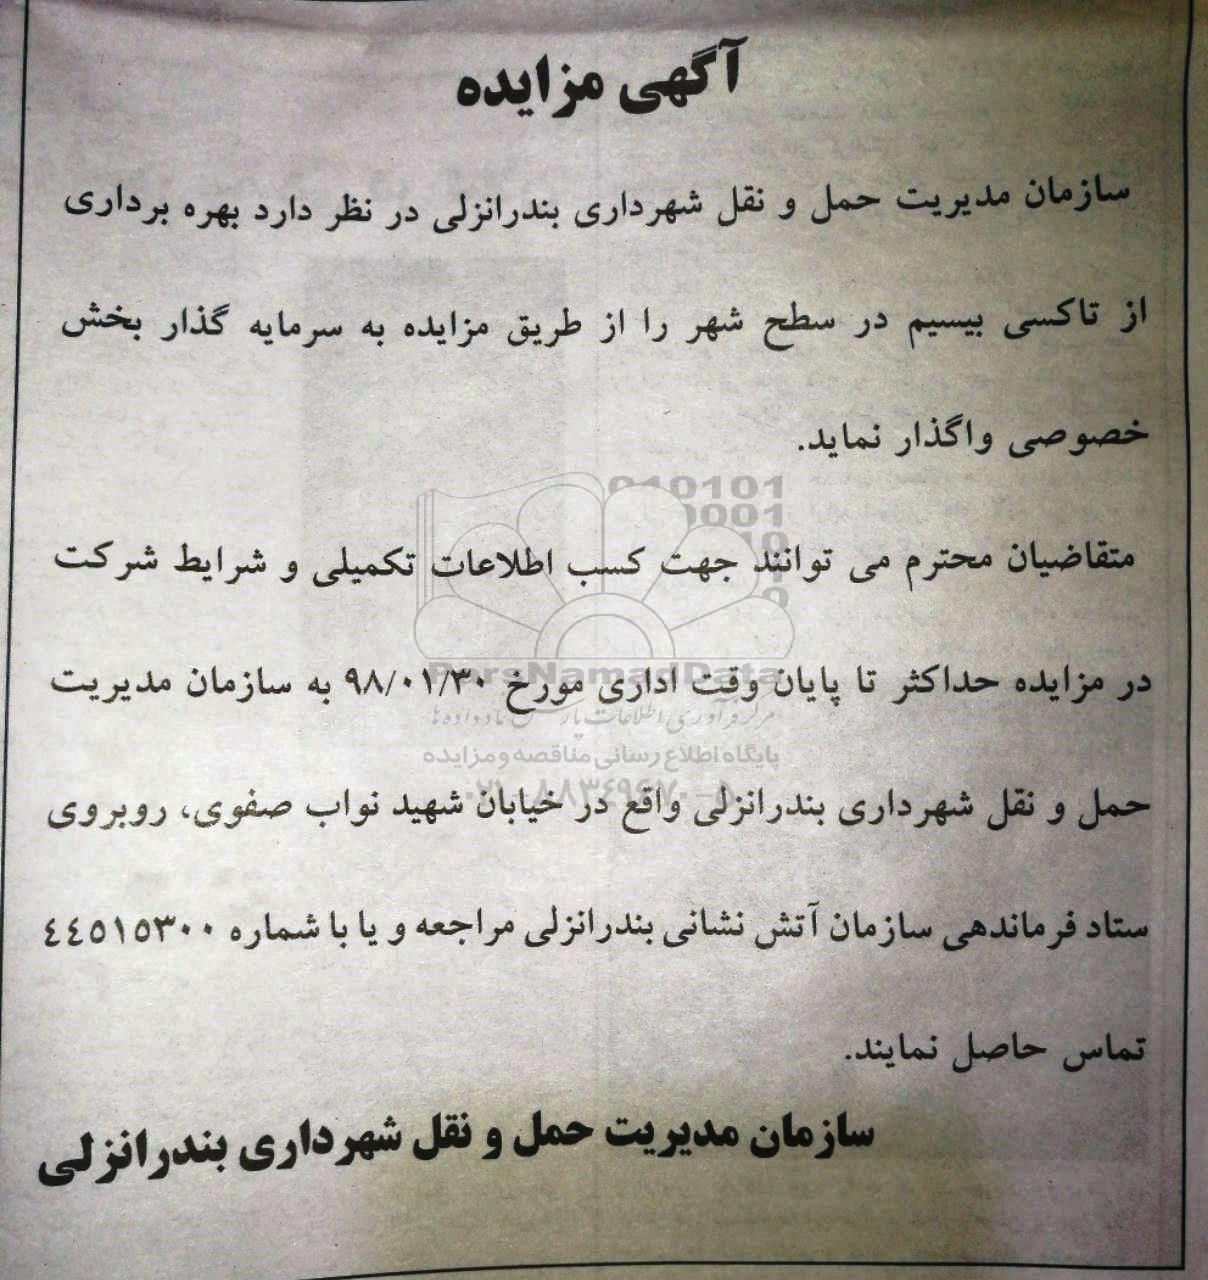 آگهی مزایده
سازمان مدیریت حمل و نقل شهرداری بندرانزلی در نظر دارد بهره برداری
از تاکسی بیسیم در سطح شهر را از طریق مزایده به سرمایه گذار بخش
خصوصی واگذار نماید.
متقاضیان محترم می توانند جهت کسب اطلاعات تکمیلی و شرایط شرکت
در مزایده حداکثر تا پایان وقت اداری مورخ ۹۸/۰۱/۳۰ به سازمان مدیریت
ParsNamadData
مرکز فرآوری اطلاعات پارس نماد داده ها
پایگاه اطلاع رسانی مناقصه و مزایده
حمل و نقل شهرداری بندرانزلی واقع در خیابان شهید نواب صفوی، روبروی
ستاد فرماندهی سازمان آتش نشانی بندرانزلی مراجعه و یا با شماره ٤٤٥١٥٣٠٠
تماس حاصل نمایند.
سازمان مدیریت حمل و نقل شهرداری بندرانزلی